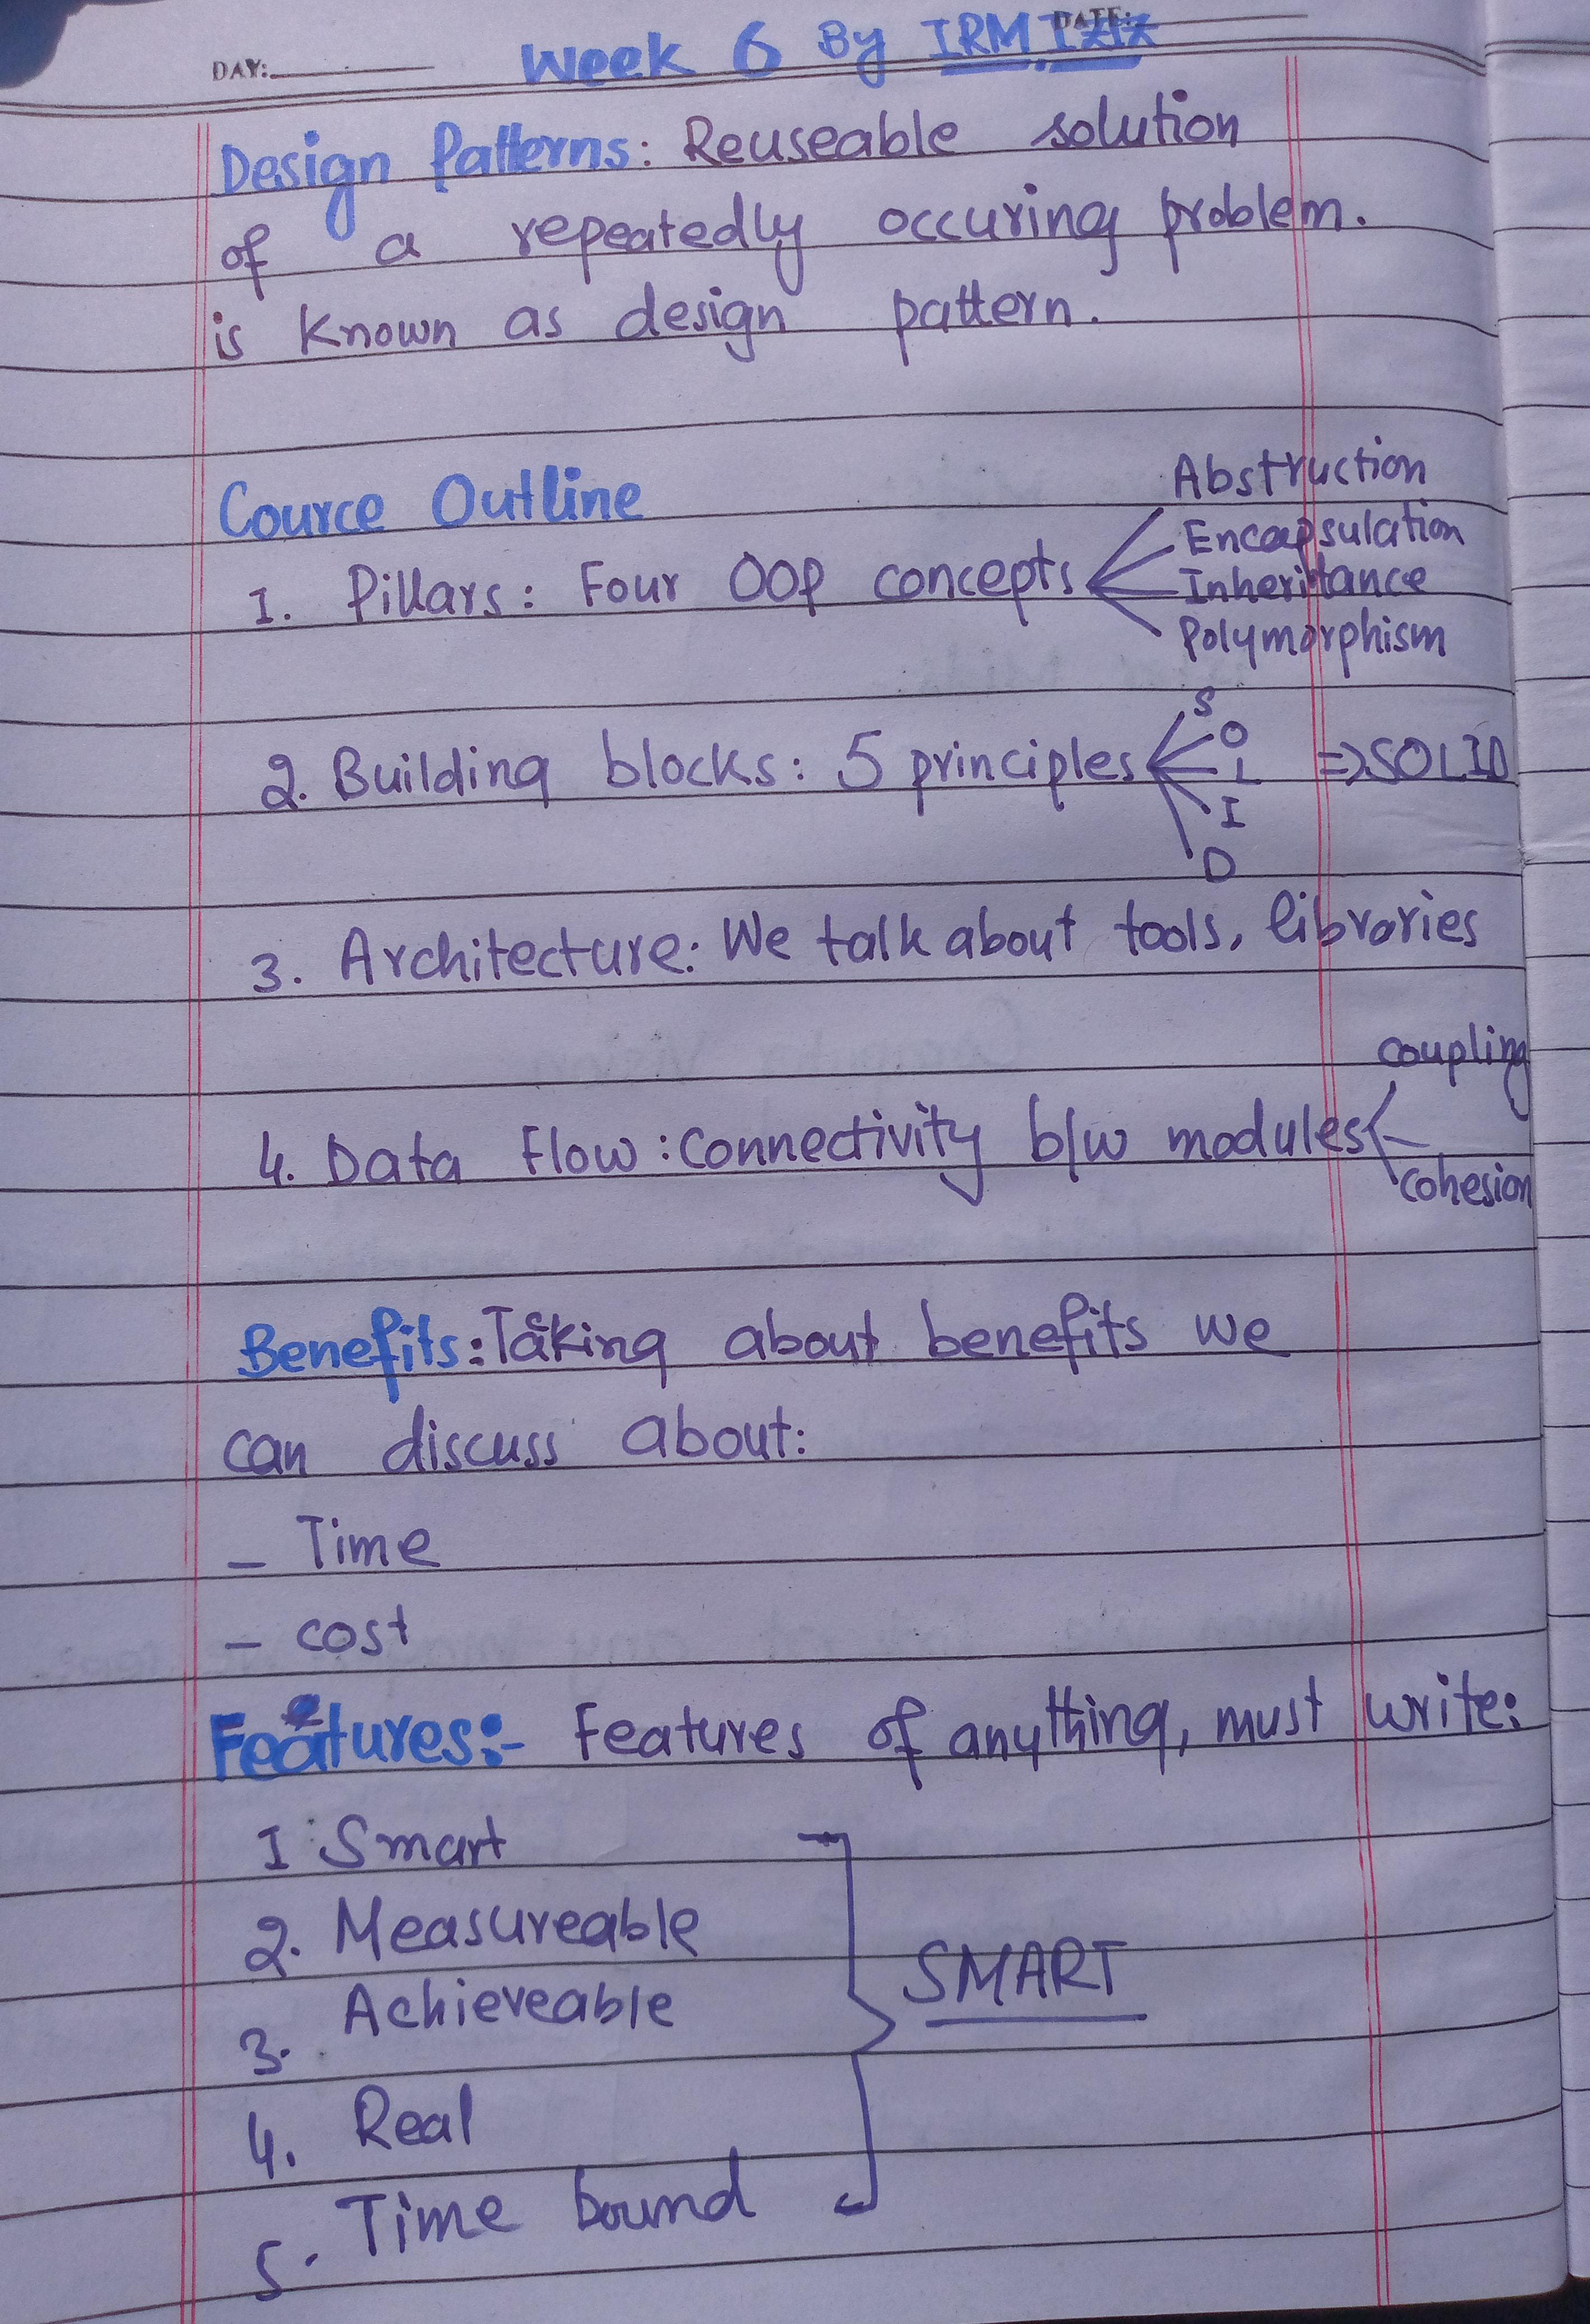 DAY:
DATE:
Week 6 By IRM
Design Patterns: Reuseable solution
of a repeatedly occuring problem.
is known as design pattern.
Cource Outline
1. Pillars: Four OOP concepts
Abstruction
Encapsulation
Inheritance
Polymorphism
2. Building blocks: 5 principles
S
O
L
I
D
⇒SOLID
3. Architecture: We talk about tools, libraries
4. Data Flow: Connectivity b/w modules
coupling
cohesion
Benefits: Talking about benefits we
can discuss about:
- Time
- cost
Features:- Features of anything, must write:
1 Smart
2. Measureable
3. Achieveable
4. Real
5. Time bound
SMART